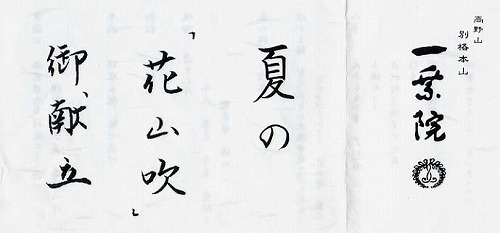 高野山
別格本山
一乗院
夏の
「花山吹」
御献立